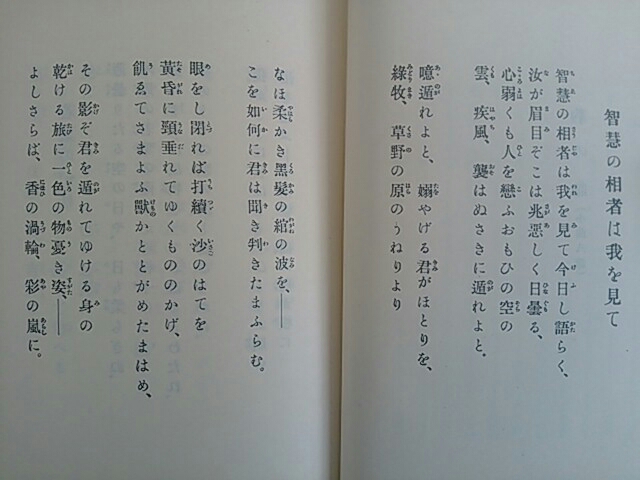 智慧の相者は我を見て
智慧の相者は我を見て今日し語らく、
汝が眉目ぞこは兆惡しく日曇る、
心弱くも人を戀ふおもひの空の
雲、疾風、襲はぬさきに遁れよと。
噫遁れよと、嫋やげる君がほとりを、
綠牧、草野の原のうねりより
なほ柔かき黑髮の綰の波を、――
こを如何に君は聞き判きたまふらむ。
眼をし閉れば打續く沙のはてを
黃昏に頸垂れてゆくもののかげ、
飢ゑてさまよふ獸かととがめたまはめ、
その影ぞ君を遁れてゆける身の
乾ける旅に一色の物憂き姿、――
よしさらば、香の渦輪、彩の嵐に。